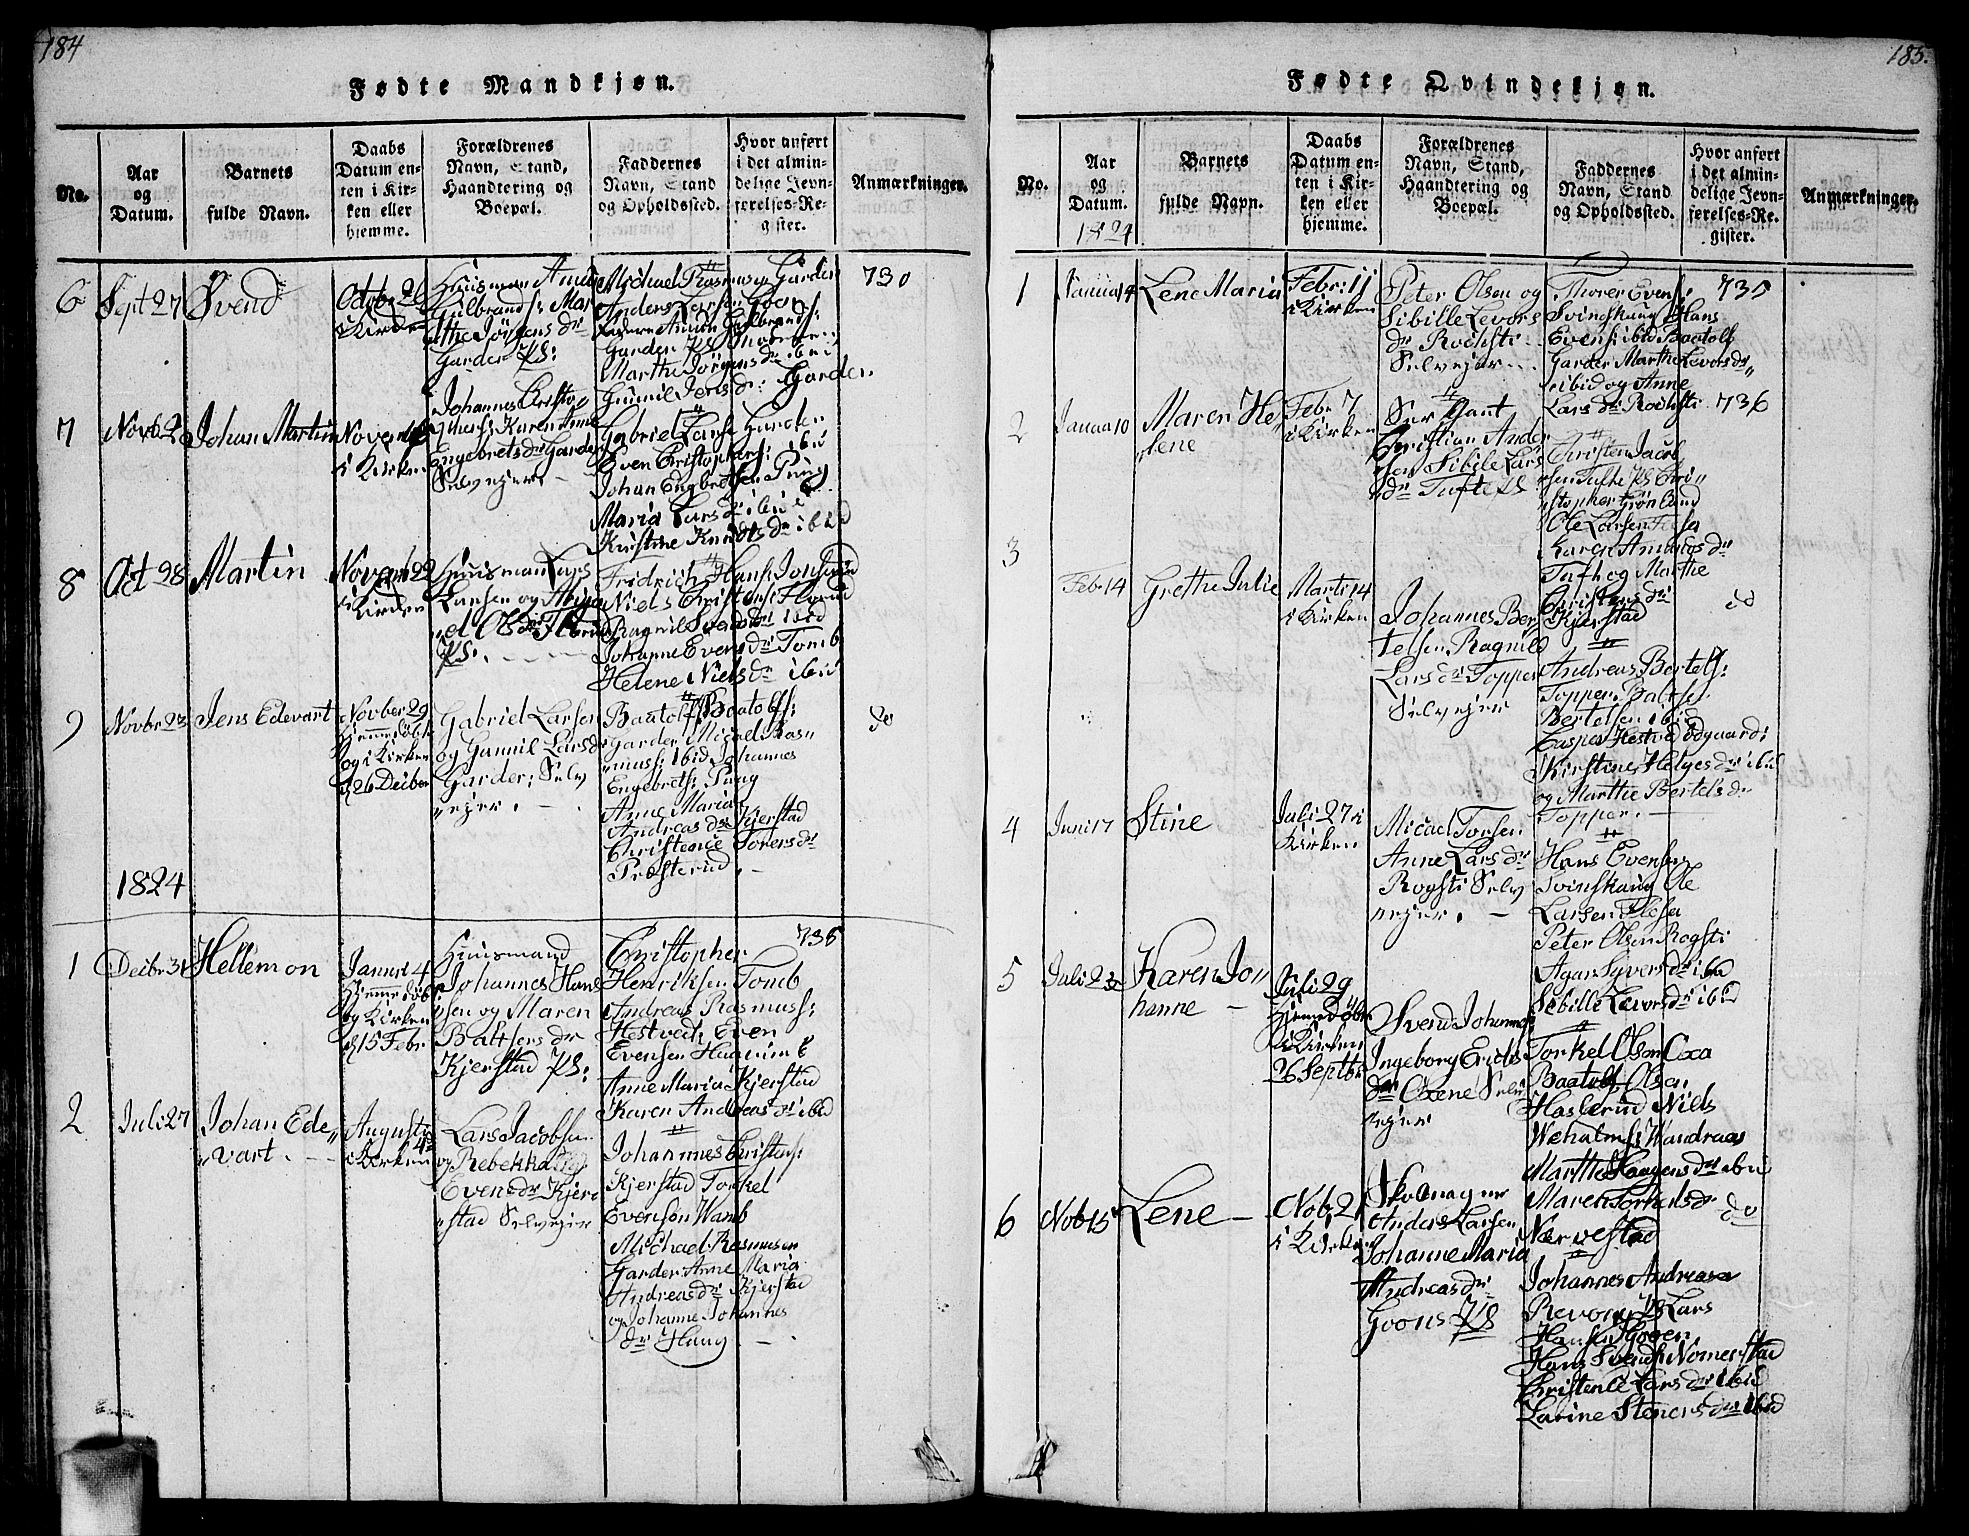 184
Fødte Mandkjøn.
No.
Aar
og
Datum.
Barnets
fulde Navn.
Daabs
Datum en-
ten i Kir-
ken eller
hjemme.
Forældrenes
Navn, Stand,
Haandtering og
Boepæl.
Faddernes
Navn, Stand
og Opholdssted.
Hvor anført
i det almin-
delige Jevn-
førelses-Re-
gister.
Anmærkninger.
6
Sept 27
Svend
Octob: 26
i Kirken
Huusmann
Mar
the Jörgens dr
Garder PS:
Michael Rasmus: Garder
Anders Larsen Goon
Garder
Marthe Jörgens dr ibid
Gunnil Jens dr: Garder
730
7
Novb 2
Johan Martin
Novemb
i Kirken
Johannes Christo
phers: Karen
Engebrets dr Garder
Selvejer. -
Gabriel Lars: Garder
Even Christophers: ibid
Johan Engbretsen Pung
Maria Lars dr ibid
Kirstine Knudts dr ibid
8
Oct 28
Martin
Novemb 22
i Kirken
Huusman Lars
Larsen og
Ols dr
PS:
Fridrich Hans:
Niels Christens:
Ragnil Svens dr ibid
Johanne Evens dr Tomb
Helene Niels dr ibid
9
Novbr 23
Jens Edevart
Novber 29
Hjemmedöbt
og i Kirken
d 26 Decber
Gabriel Larsen
og Gunnil Larsdr
Garder: Selv
ejer. -
Baatolf Baatolfs:
Garder Micael Ras„
„muss: ibid Johannes
Engebrets: Pung
Anne Maria
Andreas dr Kjerstad
Christence Torers dr
Præsterud. -
do
1824
1
Decbr 31
Hellem on
Januari 4
Hjemmedöbt
og Kirken
d 15 Febr
Huusmand
Johannes Hans
sen og Maren
Baltsers dr
Kjerstad PS:
Christopher
Henriksen Tomb
Andreas Rasmuss:
Hestvedt Even
Evensen
Anne Maria Kjerstad
Karen Andreas dr ibid
735
2
Juli 27
Johan Ede„
„vart. -
Augusti
i Kirken
Lars Jacobsen
og Rebekka
Evens dr Kjer
„stad Selvejer
Johannes Christens:
Kjerstad Torkel
Evensen Wamb
Michael Rasmusen
Garder Anne Maria
Andreas dr Kjerstad
og Johanne Johannes
dr Haug -
185.
Fødte Qvindekjøn.
No.
Aar
og
Datum.
1824
Barnets
fulde Navn.
Daabs
Datum en-
ten i Kir-
ken eller
hjemme.
Forældrenes
Navn, Stand,
Haandtering og
Boepæl.
Faddernes
Navn, Stand
og Opholdssted.
Hvor anført
i det almin-
delige Jevn-
førelses-Re-
gister.
Anmærkninger.
1
Janua 14
Lene Maria
Febr: 11
i Kirken
Peter Olsen og
Sibille Levors
dr Rochsti
Selvejer..
Thorer Evens:
Svinskaug Hans
Evens: ibid Baatolf
Garder Marthe Levors dr„
ibid og Anne
Lars dr Rochsti
735
2
Janua 10
Maren He„
„lene
Febr 7
i Kirken
Serjant
Christian Ander
„sen Sibile Lars
„dr Tufte PS
Christen Jacob
„sen Tufte PS Chri„
„stopher Grönlund
Ole Larsen
Karen Ambros dr
og Marthe
Christens dr
Kjerstad
736
3
Feb 14
Grethe Julie
Marti 14
i Kirken
Johannes Ber
telsen Ragnild
Lars dr Topper
Selvejer
Andreas Bertels:
Topper
Bertelsen ibid
Casper Hestved
Kirstine Helges dr ibid
og Marthe Bertels dr
Topper. -
id
4
Juni 17
Stine
Juli 27 i
Kirken
Micael Torsen
Anne Lars dr
Rogsti Selv
„ejer. -
Hans Evensen
Svinskaug Ole
Larsen
Peter Olsen Rogsti
Agar Syvers dr ibid
Sibille Levors dr ibid
5
Juli 23
Karen Jo„
hanne -
Juli 29
Hjemmedöbt
i Kirken
26 Septbr
Svend Johannes
Ingeborg Erichs
dr Oxene Selv
ejer
Torkel Olsen Oxa
Baatolf Olsen
Haslerud Niels
Marthe Haagens dr ibid
Maren dr
Nærvestad
6
Nob 15
Lene -
Nob 21
i Kirken
Skomager
Anders Larsen
Johanne Maria
Andreas dr
Goons PS
Johannes Andreasen
Lars
Hansen
Hans Svends: Nomerstad
Christence Lars dr ibid
Larine Steners dr ibid
do